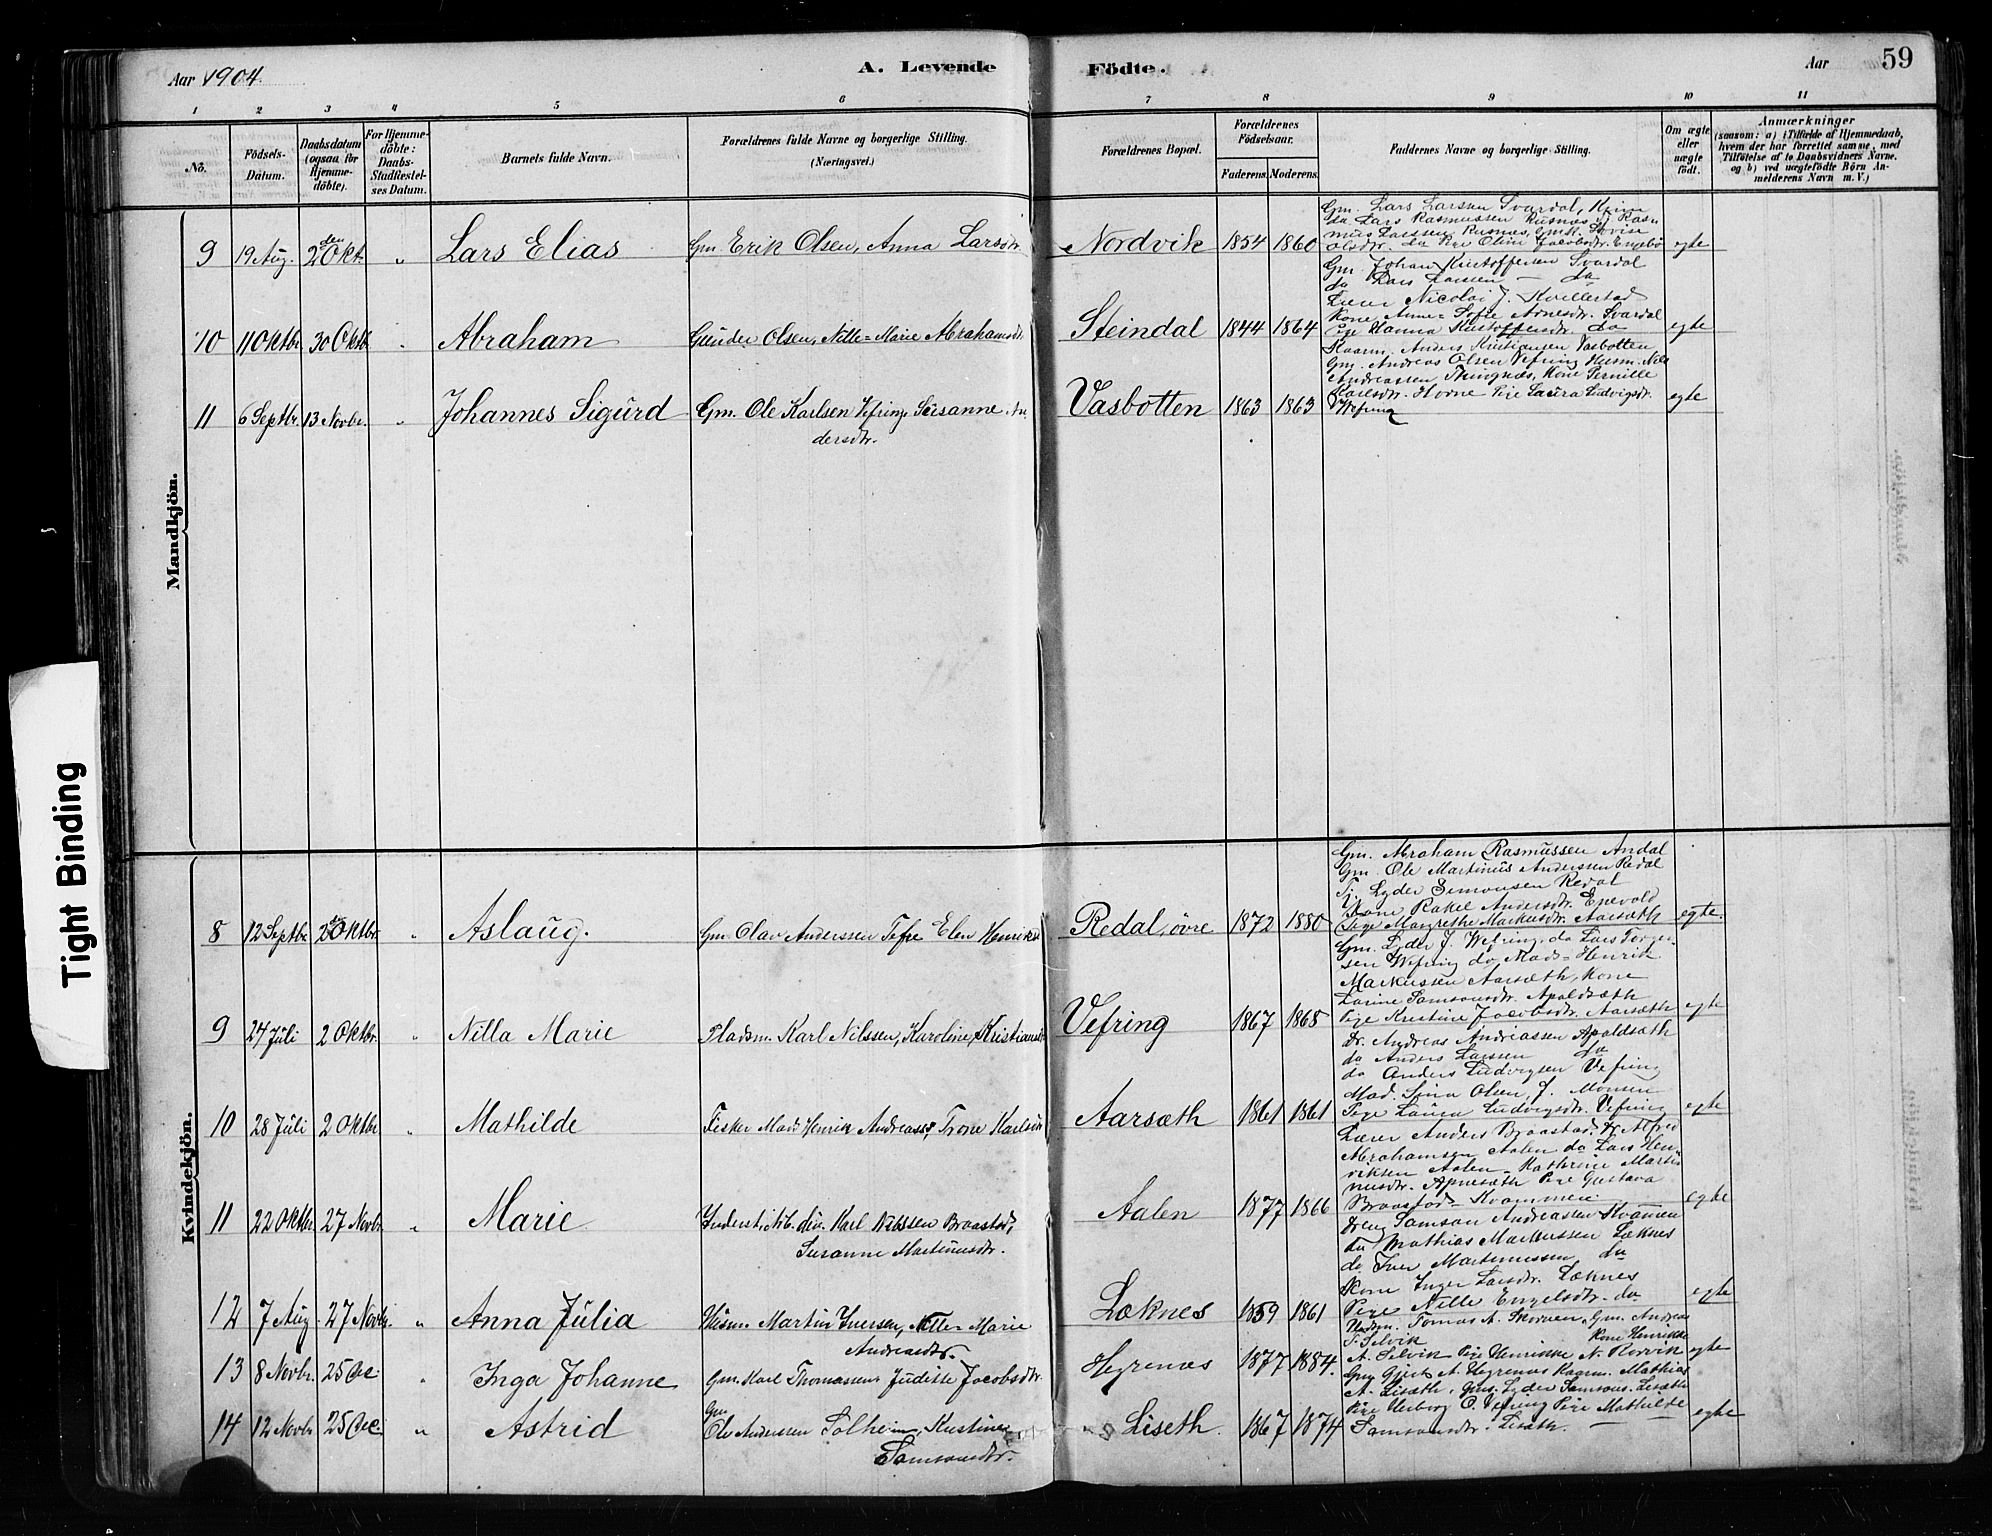 Aar 1904.
A. Levende Födte.
Aar
59
1 2 3 4 5 6 7 8 9 10 11
No.
Födsels-Datum.
Daabsdatum (ogsaa för Hjemme-döbte).
For Hjemme-döbte: Daabs-Stadfæstel-ses Datum.
Barnets fulde Navn.
Forældrenes fulde Navne og borgerlige Stilling.
(Næringsvei.)
Forældrenes Bopæl.
Forældrenes Födselsaar.
Faderens. Moderens.
Faddernes Navne og borgerlige Stilling.
Om ægte eller uægte födt.
Anmærkninger
(saasom: a) i Tilfælde af Hjemmedaab, hvem der har forrettet samme, med Tilföielse af to Daabsvidners Navne, og b) ved uægtefödte Börn Anmelderens Navn m. V.)
Mandkjön.
9 19 Aug. 2den Okt. " Lars Elias Gm. Erik Olsen, Anna Larsdtr. Nordvik 1854 1860 egte
Gm. Lars Larsen Svardal,
do Lars Rasmussen Rusnæs,
10 11 Oktbr. 30 Oktb. " Abraham Gunder Olsen, Nille-Marie Abrahamsdtr. Steindal 1844 1864 egte
Gm. Johan Kristoffersen Svardal
do Lars Larsen — do
Lærer Nicolai J. Kvellestad
Kone Anne-Sofie Arnesdtr. Svardal
Pige Hanna Kristoffersdtr. do
11 6 Septbr. 13 Novbr. " Johannes Sigurd Gm. Ole Karlsen Vefring, Susanne Andersdtr. Vasbotten 1863 1863 egte
Kaarm. Anders Kristiansen Vasbotten
Gm. Andreas Olsen Vefring Husm. Nils
Andreassen Thingnæs, Kone Pernille
Karlsdtr. Horne Pige Laura Ludvigsdtr.
Vefring
Kvindekjön.
8 12 Septbr. 2 Oktbr. " Aslaug. Gm. Olav Anderssen Tefre Elen Henriksd Redal, övre 1872 1880 egte.
Gm. Abraham Rasmussen Andal
Gm. Ole Martinus Anderssen Redal
Tj. Lyder Simonsen Redal
Kone Rakel Andersdtr. Espevold
Pige Margrethe Markusdtr. Aarsæth
9 24 Juli 2 Oktbr. " Nilla Marie Pladsm. Karl Nilssen, Karoline Kristiansd Vefring 1867 1865 egte
Gm. Lyder J. Vefring, do Lars Torger-
sen Vefring do Mads-Henrik
Markussen Aarsæth, Kone
Larine Samsonsdtr. Apoldsæth
Pige Kristine Jacobsdtr. Aarsæth
10 28 Juli 2 Oktbr " Mathilde Fisker Mads Henrik Andreass., Trone Karlsdtr Aarsæth 1861 1861 egte
Dr. Andreas Andreassen Apoldsæth
do Anders Larssen do
do Anders Ludvigsen Vefring
Mad. Sina Olsen, J. Monsen
Pige Laura Ludvigsdtr. Vefring
11 22 Oktbr. 27 Novbr. " Marie Karl Nilssen Braastad, Susanne Martinusdtr. Aalen 1877 1866 egte
Lærer Anders Braastad, Dr. Alfred
Abrahamsen Aalen do Lars Hen-
riksen Aalen - Kathrine Marti-
nusdtr. Apnesæth Pige Gustava
Braastad - Kvammen
12 7 Aug. 27 Novbr. " Anna Julia Husm. Martin Iversen, Nille-Marie Andreasdtr. Løknes 1859 1861 egte
Dreng Samson Andreassen Kvammen
do Mathias Markussen Løknes
do Iver Martinussen do
Kone Inger Larsdtr. Løknes
Pige Nille Engelsdtr. do
13 8 Novbr. 25 Dec " Inga Johanne Gm. Karl Thomassen, Juditte Jacobsdtr. Heyrenæs 1877 1884. egte
Tomas A. Skorven, Gm. Andreas
T. Selvik Kone Henrikke
A. Selvik Pige Henrikke N. Rorvik
14 12 Novbr 25 Dec " Astrid Gm Ole Anderssen Solheim, Kristine Samsonsdtr. Liseth. 1867 1874 egte
Gm Gjert A. Heyrenæs Kaarm. Mathias
A. Lisæth, Gm. Lyder Samsons. Lisæth
Pige Herborg O. Vefring Pige Mathilde
Samsonsdtr. Lisæth.
Tight Binding